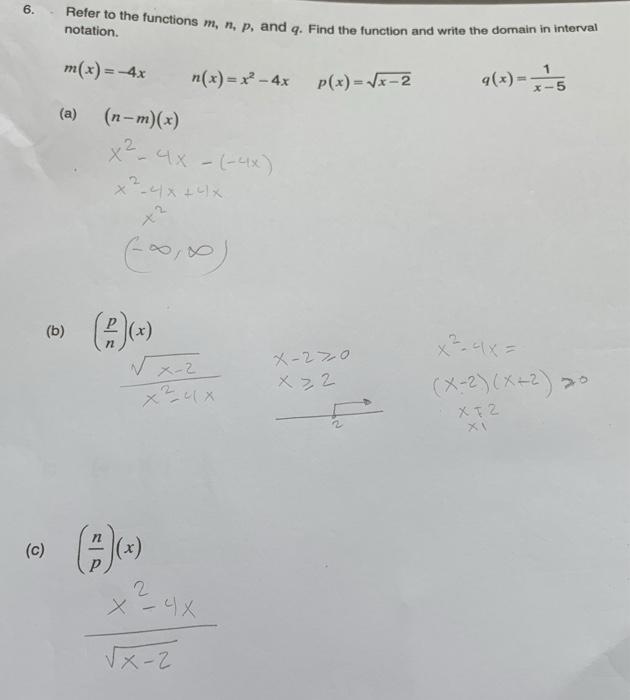 6. Refer to the functions m, n, p, and q. Find the function and write the domain in interval
notation.
m(x) = -4x n(x) = x² - 4x p(x) = √x-2 q(x) = 1/x-5
(a) (n-m)(x)
x² - 4x - (-4x)
x² - 4x + 4x
x²
(-∞, ∞)
(b) (p/n)(x)
√x-2
x² - 4x
x-2 ≥ 0
x ≥ 2
2
x² - 4x =
(x-2)(x+2) ≥ 0
(c) (n/p)(x)
x² - 4x
√x-2